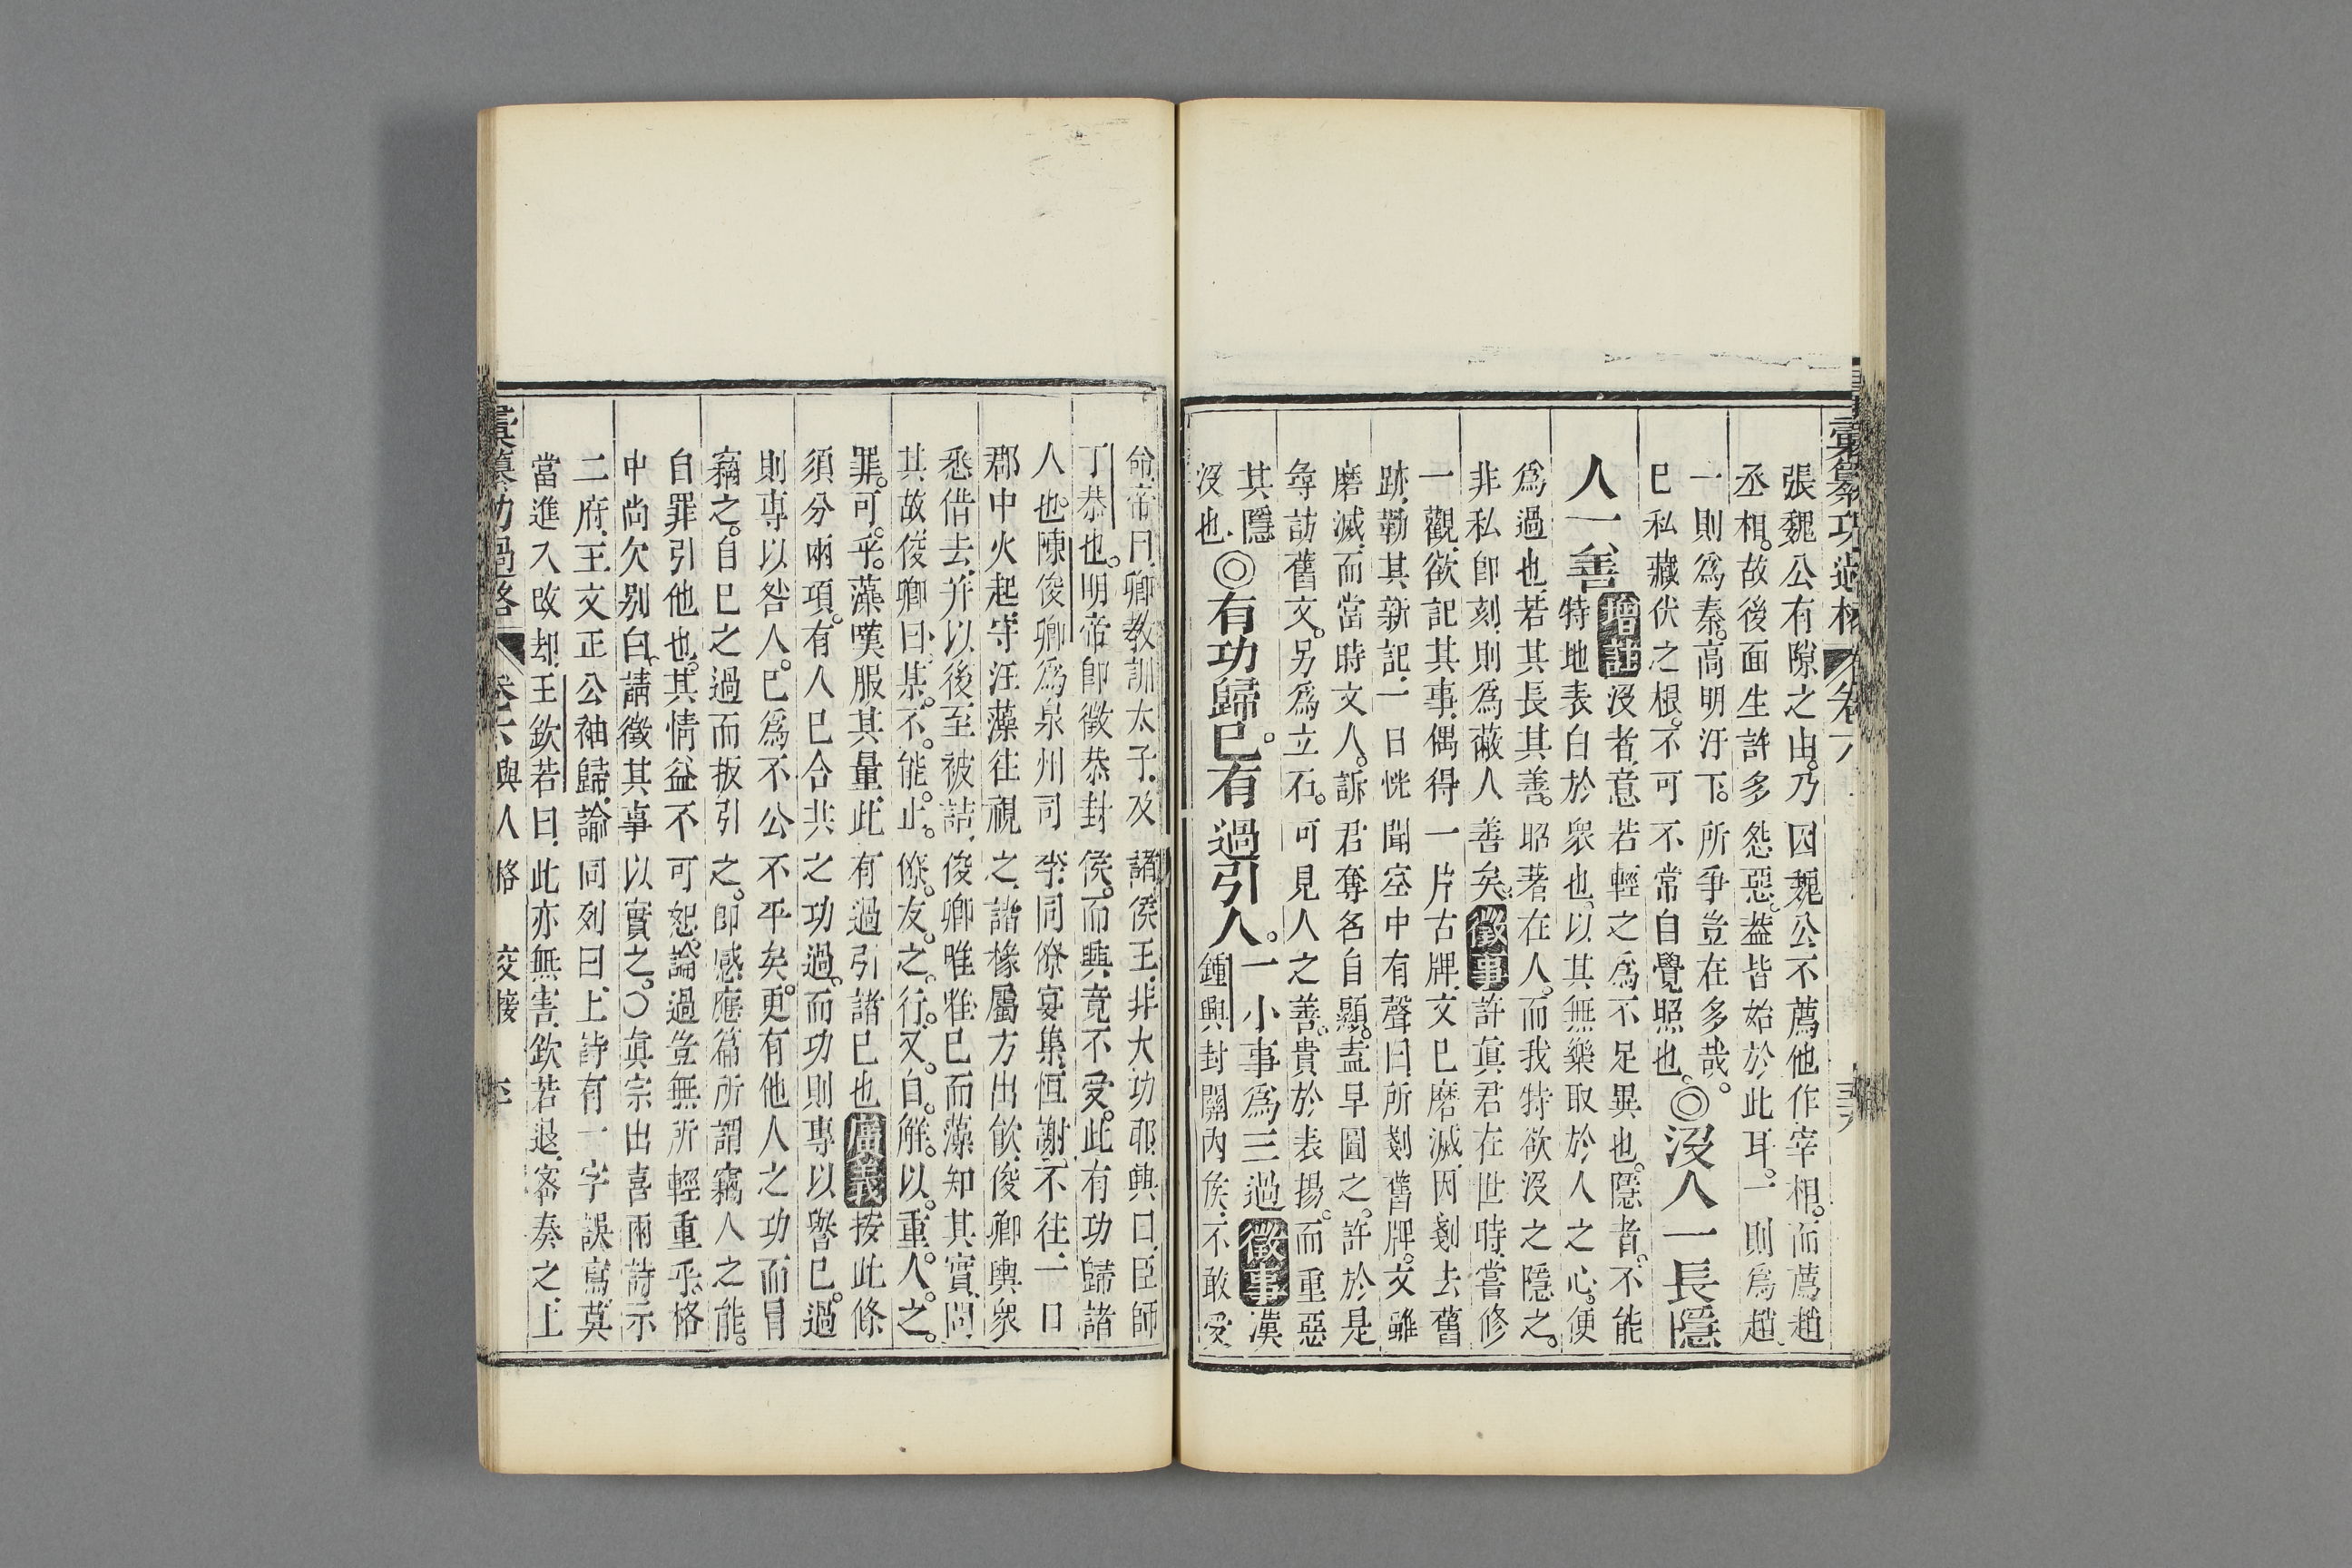 彙纂功過格 卷六
張魏公有隙之由。乃因魏公不薦他作宰相。而薦趙
丞相。故後面生許多怨惡。蓋皆始於此耳。一則爲趙
一則爲秦。高明汙下。所爭豈在多哉。
已私藏伏之根。不可不常自覺照也。◎沒人一長隱
人一善 增註 沒者、意若輕之爲不足異也。隱者、不能
特地表白於眾也、以其無樂取於人之心。便
爲過也、若其長其善。昭著在人。而我特欲沒之隱之。
非私卽刻、則爲蔽人善矣。徵事 許眞君在世時、嘗修
一觀、欲記其事、偶得一片古牌、文已磨滅、因剗去舊
跡、勒其新記、一日恍聞空中有聲曰、所剗舊牌。文雖
磨滅、而當時文人。訴君奪名自顯。盍早圖之。許於是
尋訪舊文。另爲立石。可見人之善。貴於表揚。而重惡
其隱
沒也、◎有功歸已。有過引人。一小事爲三過 徵事 漢
鍾興封關內侯、不敢受
命、帝曰、卿教訓太子、及諸侯王、非大功耶、興曰、臣師
丁恭也。明帝卽徵恭封侯。而興竟不受。此有功歸諸
人也。陳俊卿爲泉州司李、同僚宴集、恒謝不往、一日
郡中火起、守汪藻往視之、諸椽屬方出飲、俊卿與衆
悉借去、并以後至被詰、俊卿唯唯已而藻知其實、問
其故、俊卿曰、某。不。能。止。僚。友。之。行。又。自。解。以。重。人。之。
罪。可。乎。藻嘆服其量、此有過引諸已也 廣義 按此條
須分兩項。有人已合共之功過。而功則專以譽已。過
則專以咎人。已爲不公不平矣。更有他人之功而冒
竊之。自已之過而扳引之。卽感應篇所謂竊人之能。
自罪引他也。其情益不可恕。論過豈無所輕重乎。格
中尚欠別白、請徵其事以實之。〇眞宗出喜雨詩示
二府、王文正公袖歸、諭同列曰、上詩有一字誤寫、莫
當進入改却、王欽若曰、此亦無害、欽若退、密奏之、上
彙纂功過格 卷六 與人格 交接